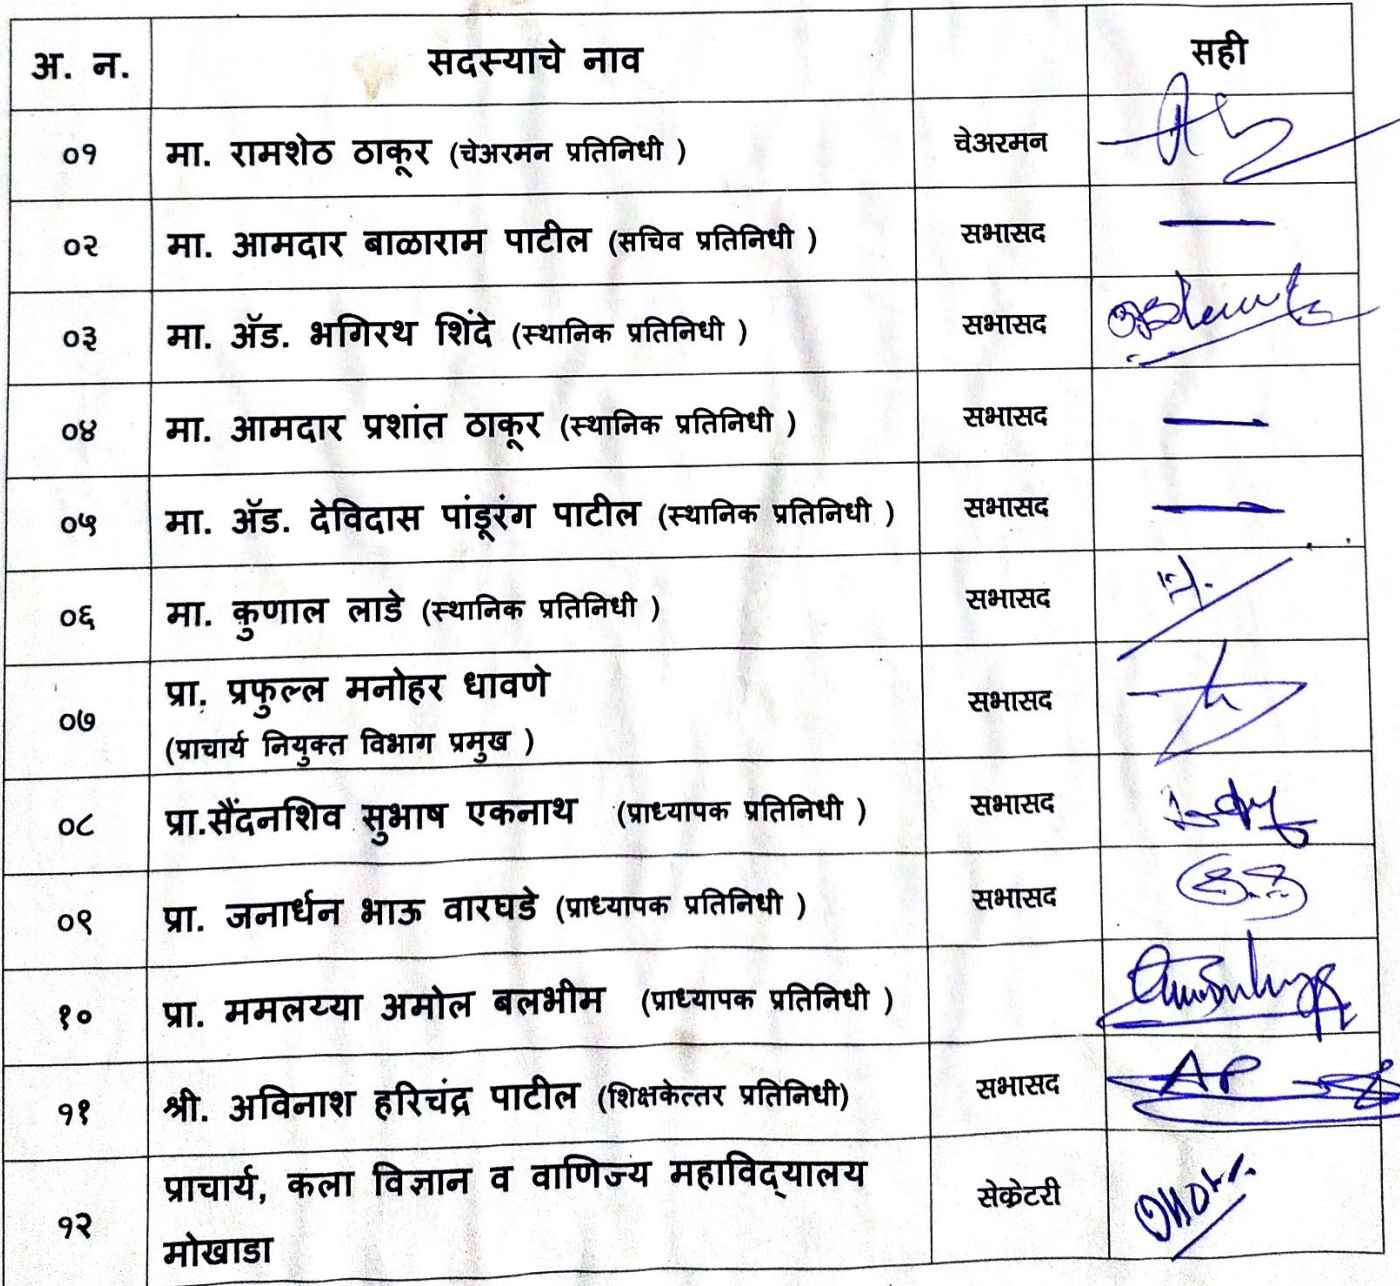 अ. न. सदस्याचे नाव सही
०१ मा. रामशेठ ठाकूर (चेअरमन प्रतिनिधी ) चेअरमन
०२ मा. आमदार बाळाराम पाटील (सचिव प्रतिनिधी ) सभासद
०३ मा. ॲड. भगिरथ शिंदे (स्थानिक प्रतिनिधी ) सभासद
०४ मा. आमदार प्रशांत ठाकूर (स्थानिक प्रतिनिधी ) सभासद
०५ मा. ॲड. देविदास पांडूरंग पाटील (स्थानिक प्रतिनिधी ) सभासद
०६ मा. कुणाल लाडे (स्थानिक प्रतिनिधी ) सभासद
०७ प्रा. प्रफुल्ल मनोहर धावणे सभासद
(प्राचार्य नियुक्त विभाग प्रमुख )
०८ प्रा.सैंदनशिव सुभाष एकनाथ (प्राध्यापक प्रतिनिधी ) सभासद
०९ प्रा. जनार्धन भाऊ वारघडे (प्राध्यापक प्रतिनिधी ) सभासद
१० प्रा. ममलय्या अमोल बलभीम (प्राध्यापक प्रतिनिधी )
११ श्री. अविनाश हरिचंद्र पाटील (शिक्षकेत्तर प्रतिनिधी) सभासद AP
१२ प्राचार्य, कला विज्ञान व वाणिज्य महाविद्यालय सेक्रेटरी
मोखाडा